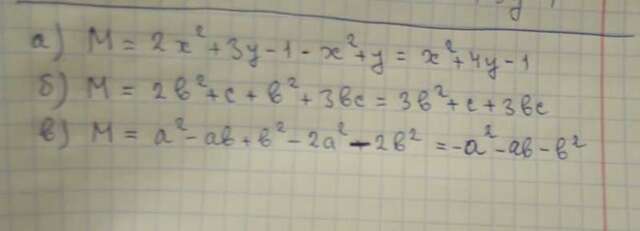 а) M = 2x² + 3y - 1 - x² + y = x² + 4y - 1
б) M = 2в² + c + в² + 3вc = 3в² + c + 3вc
в) M = a² - aв + в² - 2a² - 2в² = -a² - aв - в²